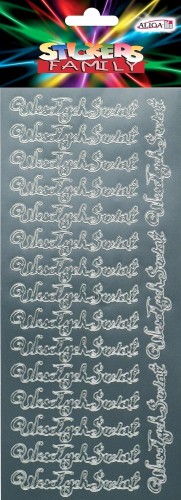 STICKERS
FAMILY
ALIGA
Wesołych Świąt
Wesołych Świąt
Wesołych Świąt
Wesołych Świąt
Wesołych Świąt
Wesołych Świąt
Wesołych Świąt
Wesołych Świąt
Wesołych Świąt
Wesołych Świąt
Wesołych Świąt
Wesołych Świąt
Wesołych Świąt
Wesołych Świąt
Wesołych Świąt
Wesołych Świąt
Wesołych Świąt
Wesołych Świąt